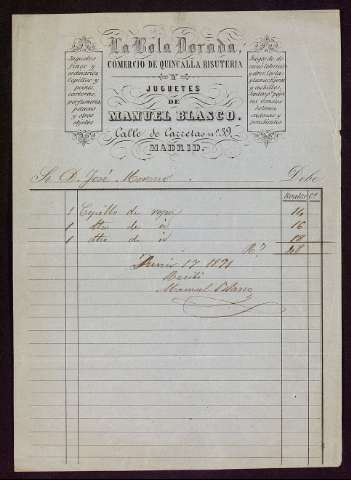 La Bola Dorada,
COMERCIO DE QUINCALLA BISUTERIA
Y
JUGUETES
DE
MANUEL BLASCO.
Calle de Carretas nº 39.
MADRID.
Juguetes
finos y
ordinarios
Cepillos y
peines,
carteras,
perfumeria,
petacas
y otros
objetos
y otros
y
botones
cadenas y
pendientes
Sr. D. José Moreno Debe
Reales Cs.
1 Cepillo de ropa 14
1 otro de id 16
1 otro de id 18
Rs. 48
Junio 17 1871
Recibí
Manuel Blasco